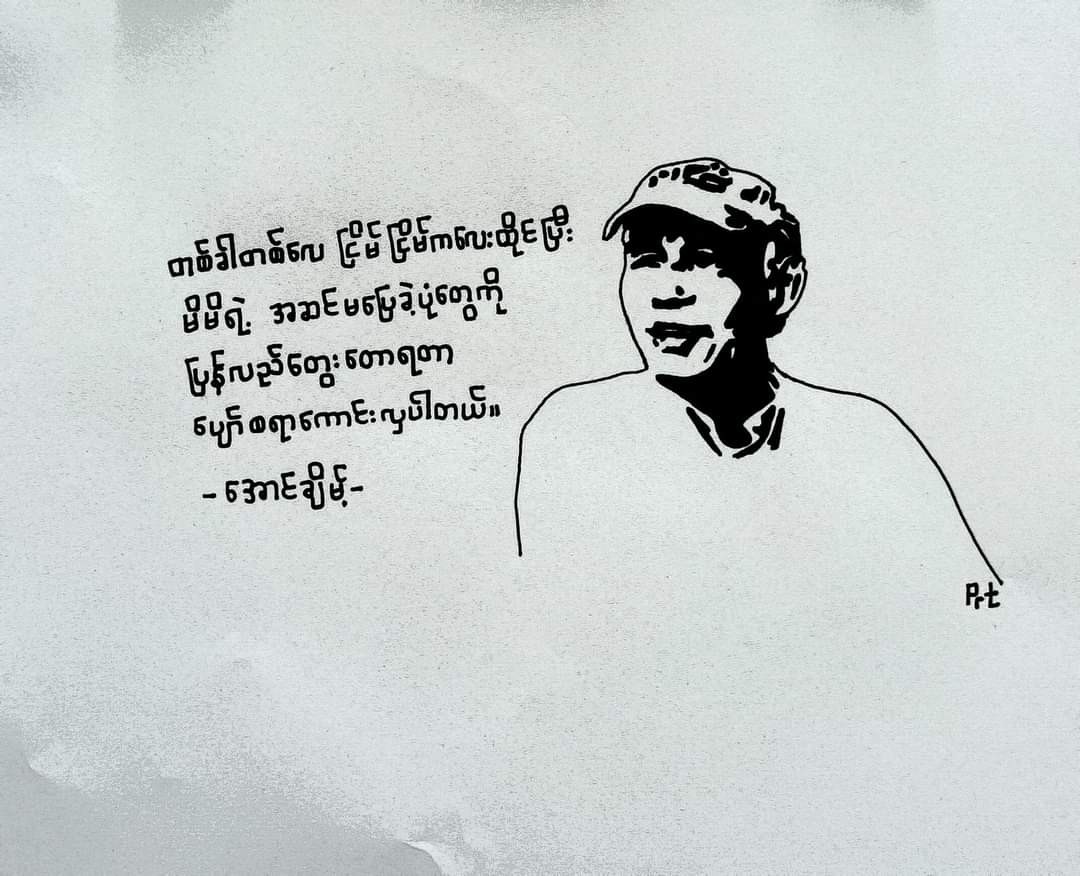 တစ်ခါတစ်လေ ငြိမ်ငြိမ်ကလေးထိုင်ပြီး
မိမိရဲ့ အဆင်မပြေခဲ့ပုံတွေကို
ပြန်လည်တွေးတောရတာ
ပျော်စရာကောင်းလှပါတယ်။
- အောင်ချိမ့် -
Prt